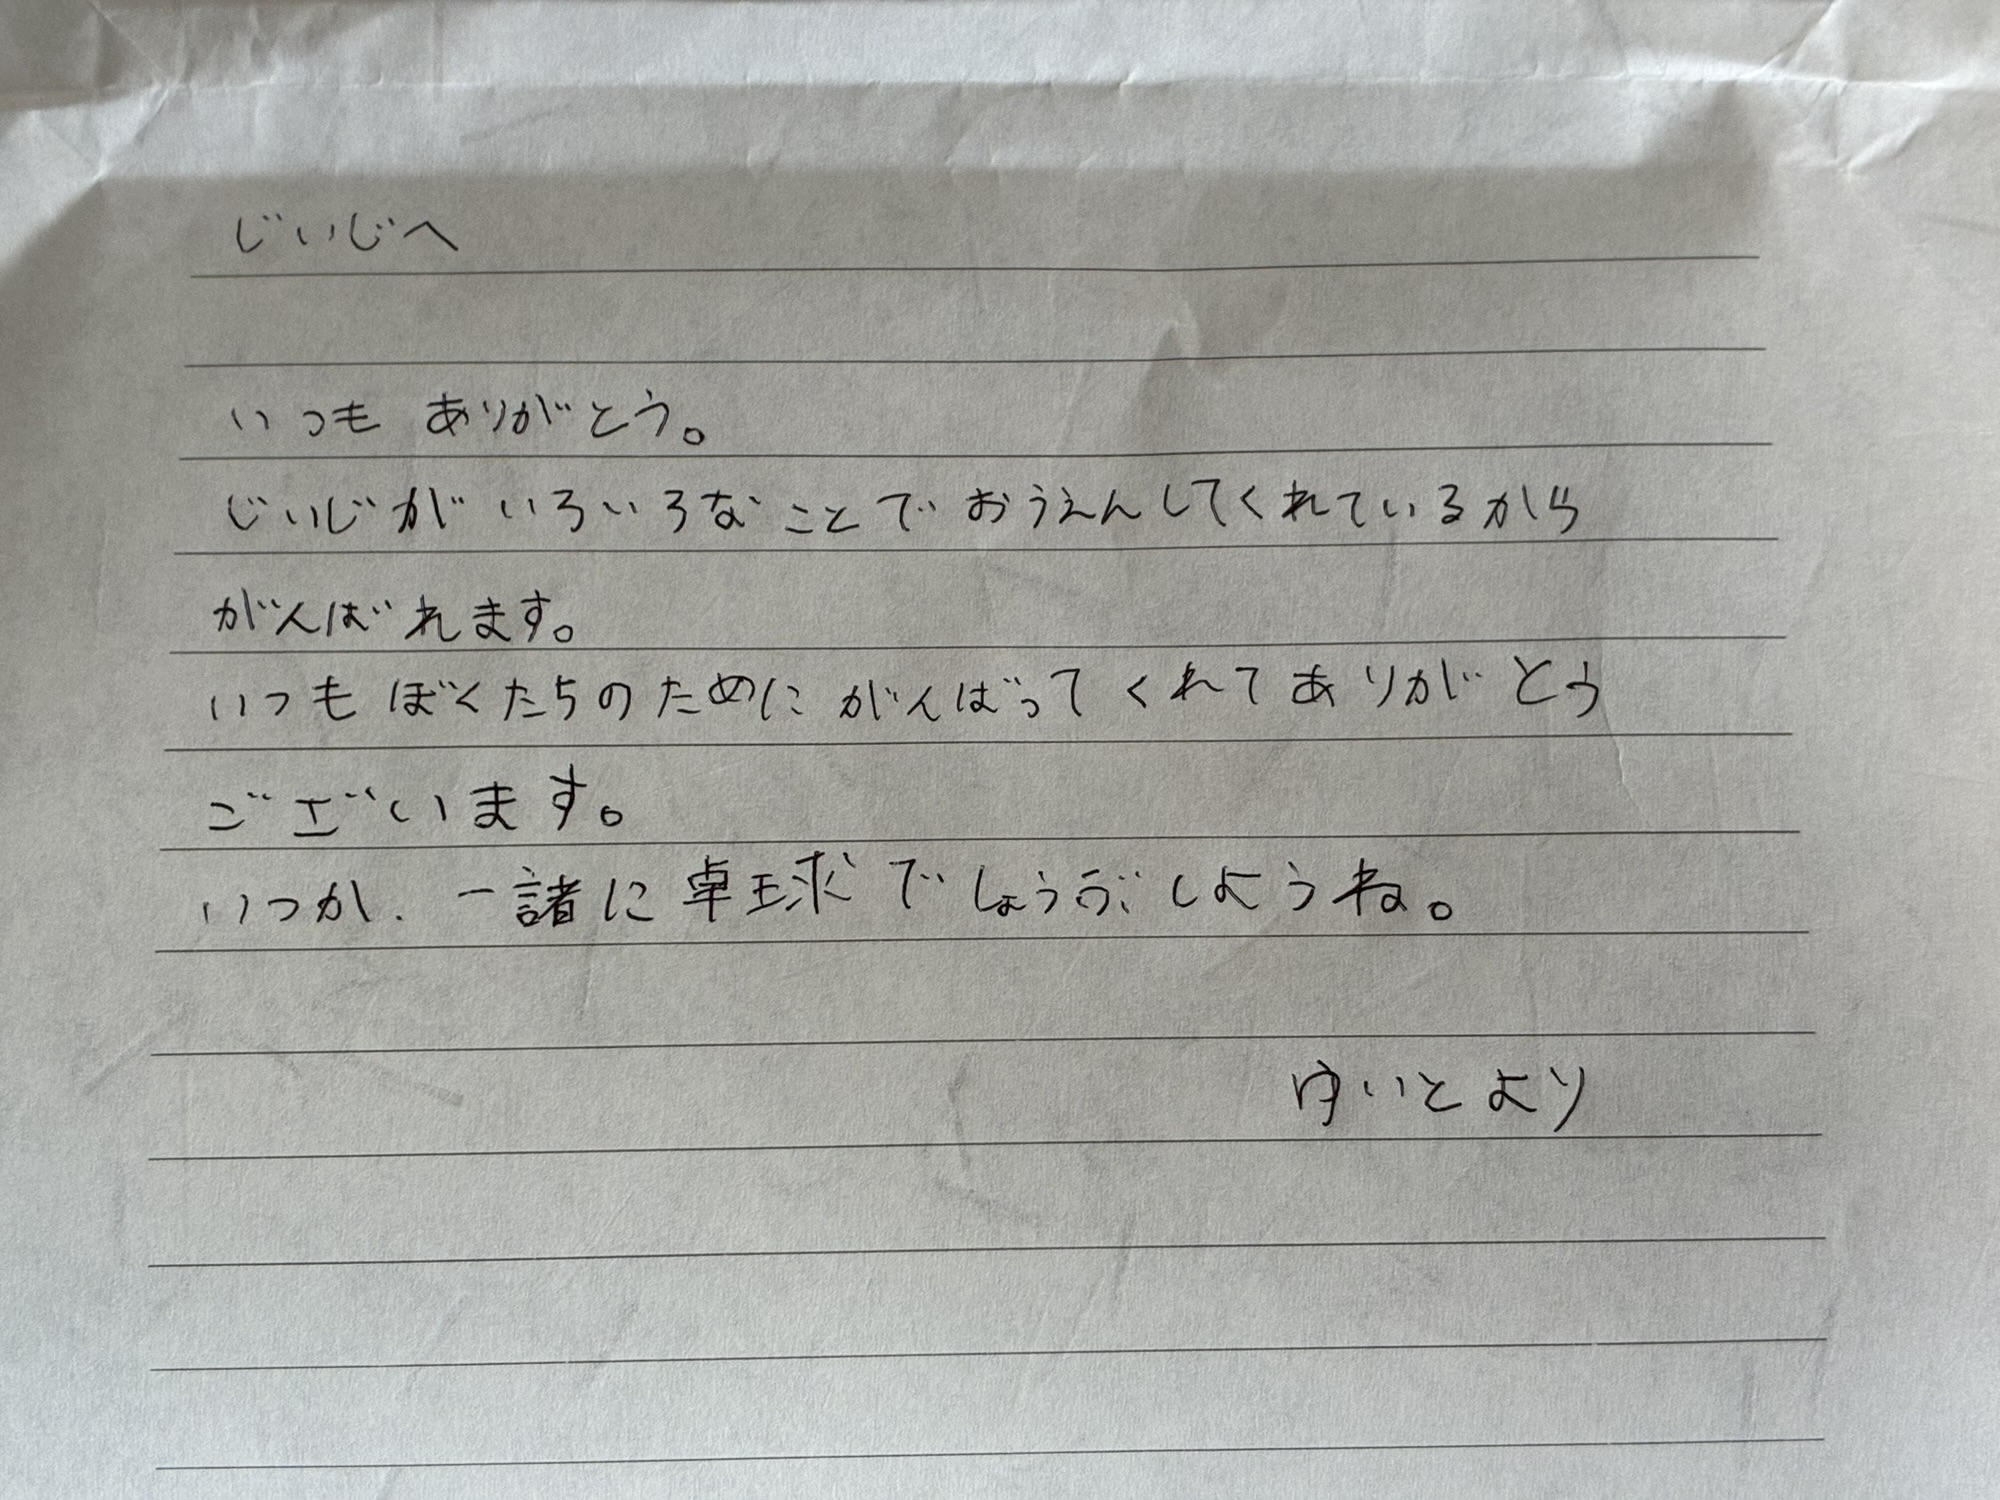 じいじへ
いつも ありがとう。
じいじが いろいろな ことで おうえんしてくれているから
がんばれます。
いつも ぼくたちのために がんばって くれて ありがとう
ございます。
いつか、一諸に 卓球で しょうぶしようね。
ゆいと より